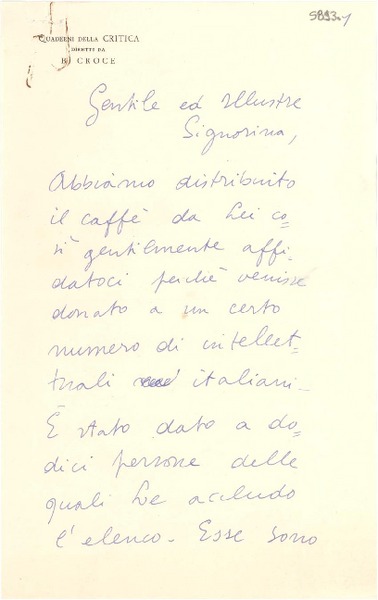 5893.1
QUADERNI DELLA CRITICA
DIRETTI DA
B. CROCE
Gentile ed Illustre
Signorina,
Abbiamo distribuito
il caffè da Lei co-
sì gentilmente affi-
datoci perchè venisse
donato a un certo
numero di intellet-
tuali italiani-
È stato dato a do-
dici persone delle
quali Le accludo
l'elenco- Esse sono